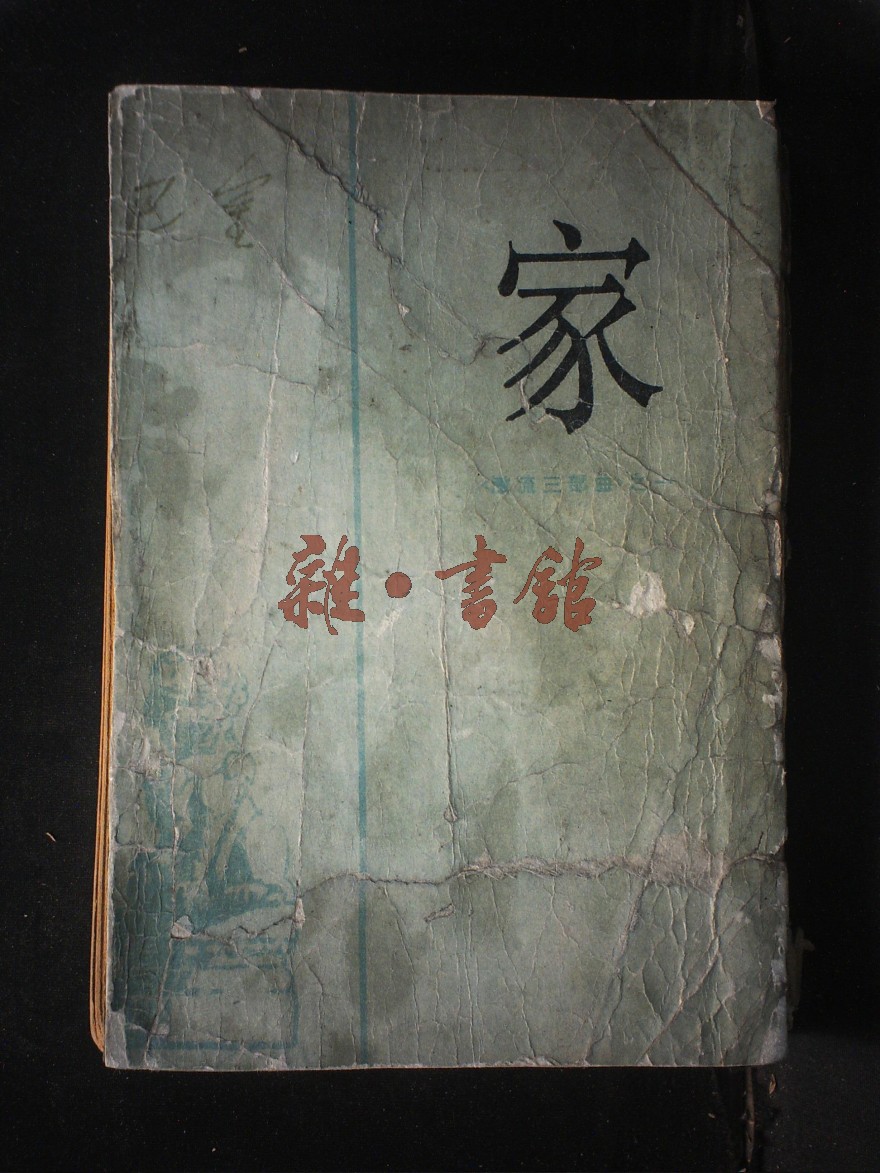 巴金
家
《激流三部曲》之一
雜·書館